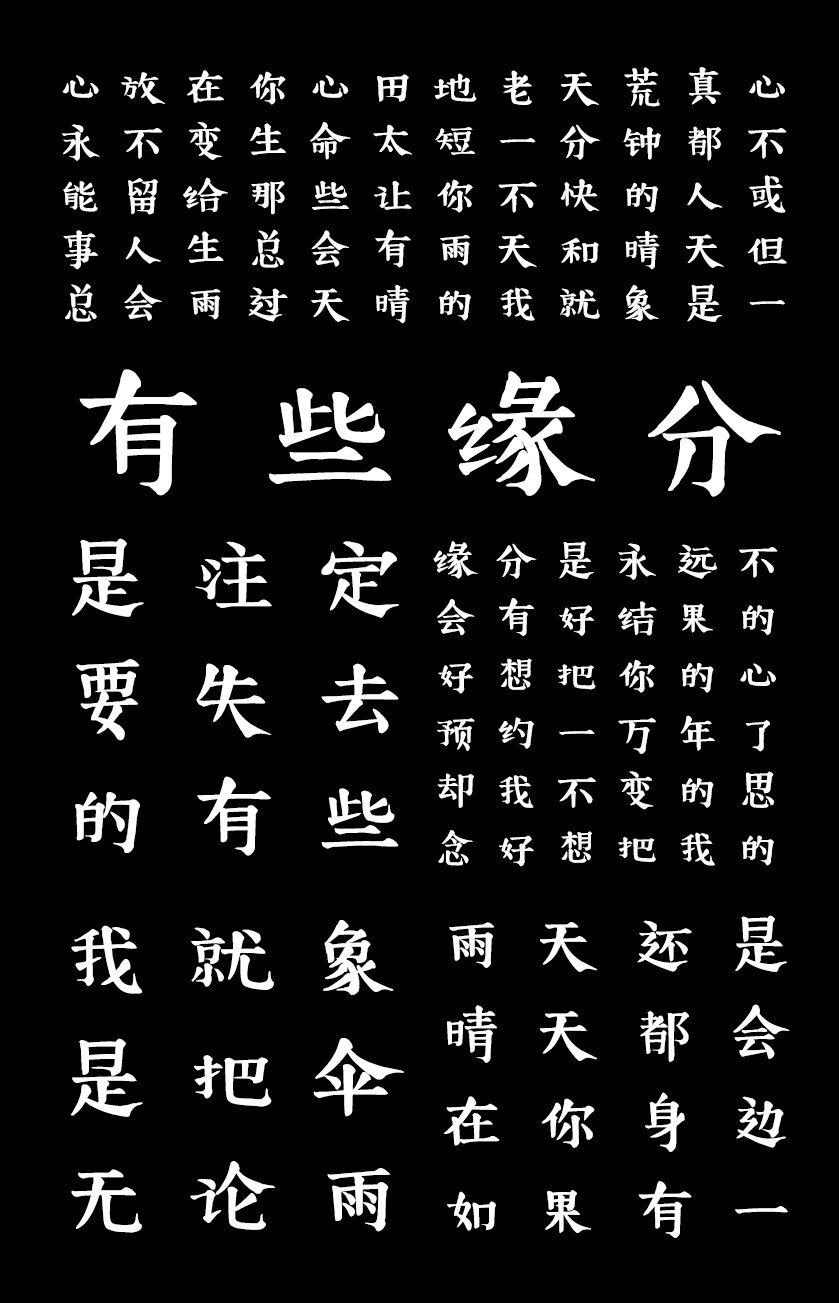 心放在你心田地老天荒真心
永不变生命太短一分钟都不
能留给那些让你不快的人或
事人生总会有雨天和晴天但
总会雨过天晴的我就象是一
有些缘分
是注定
要失去
的有些
缘分是永远不
会有好结果的
好想把你的心
预约一万年了
却我不变的思
念好想把我的
我就象
是把伞
无论雨
雨天还是
晴天都会
在你身边
如果有一